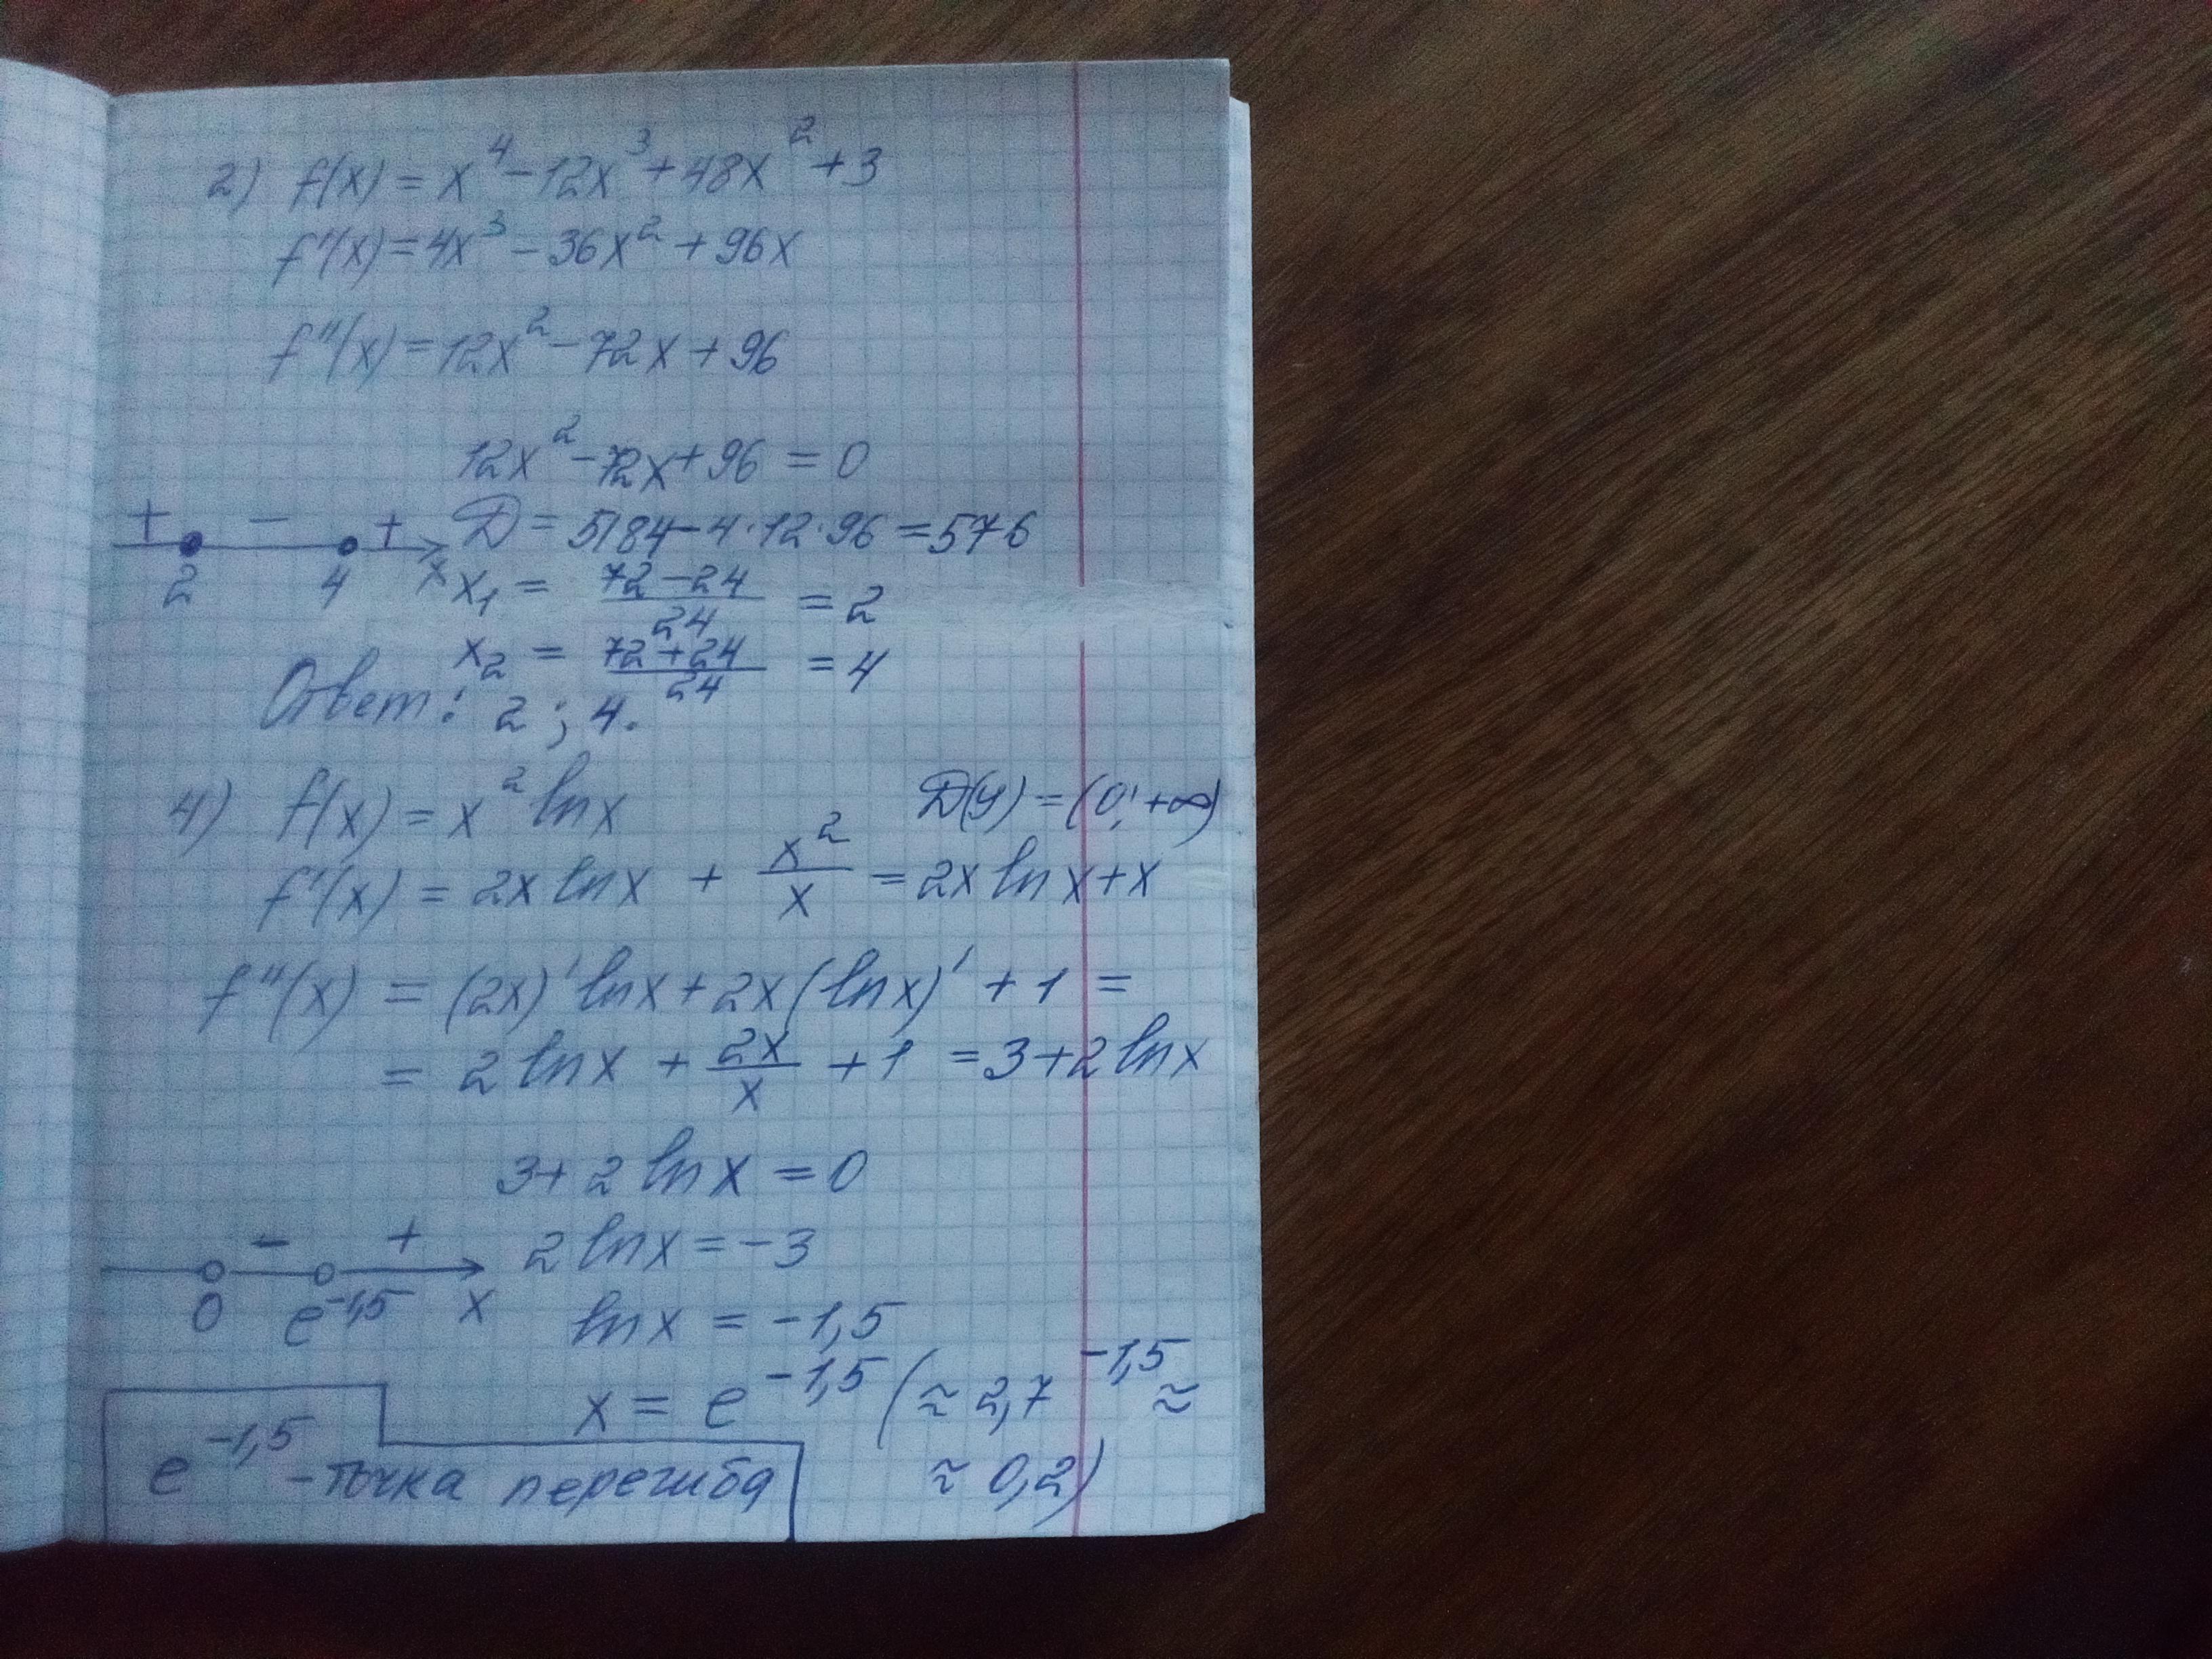 2) f(x) = x⁴ - 12x³ + 48x² + 3
f'(x) = 4x³ - 36x² + 96x
f''(x) = 12x² - 72x + 96
12x² - 72x + 96 = 0
+ - +
2 4 x
D = 5184 - 4·12·96 = 576
x₁ = (72 - 24)/24 = 2
x₂ = (72 + 24)/24 = 4
Ответ: 2; 4.
4) f(x) = x² ln x D(y) = (0; +∞)
f'(x) = 2x ln x + x²/x = 2x ln x + x
f''(x) = (2x)' ln x + 2x (ln x)' + 1 =
= 2 ln x + 2x/x + 1 = 3 + 2 ln x
3 + 2 ln x = 0
- +
0 e⁻¹,⁵ x
2 ln x = -3
ln x = -1,5
x = e⁻¹,⁵ (≈ 2,7⁻¹,⁵ ≈
≈ 0,2)
e⁻¹,⁵ - точка перегиба